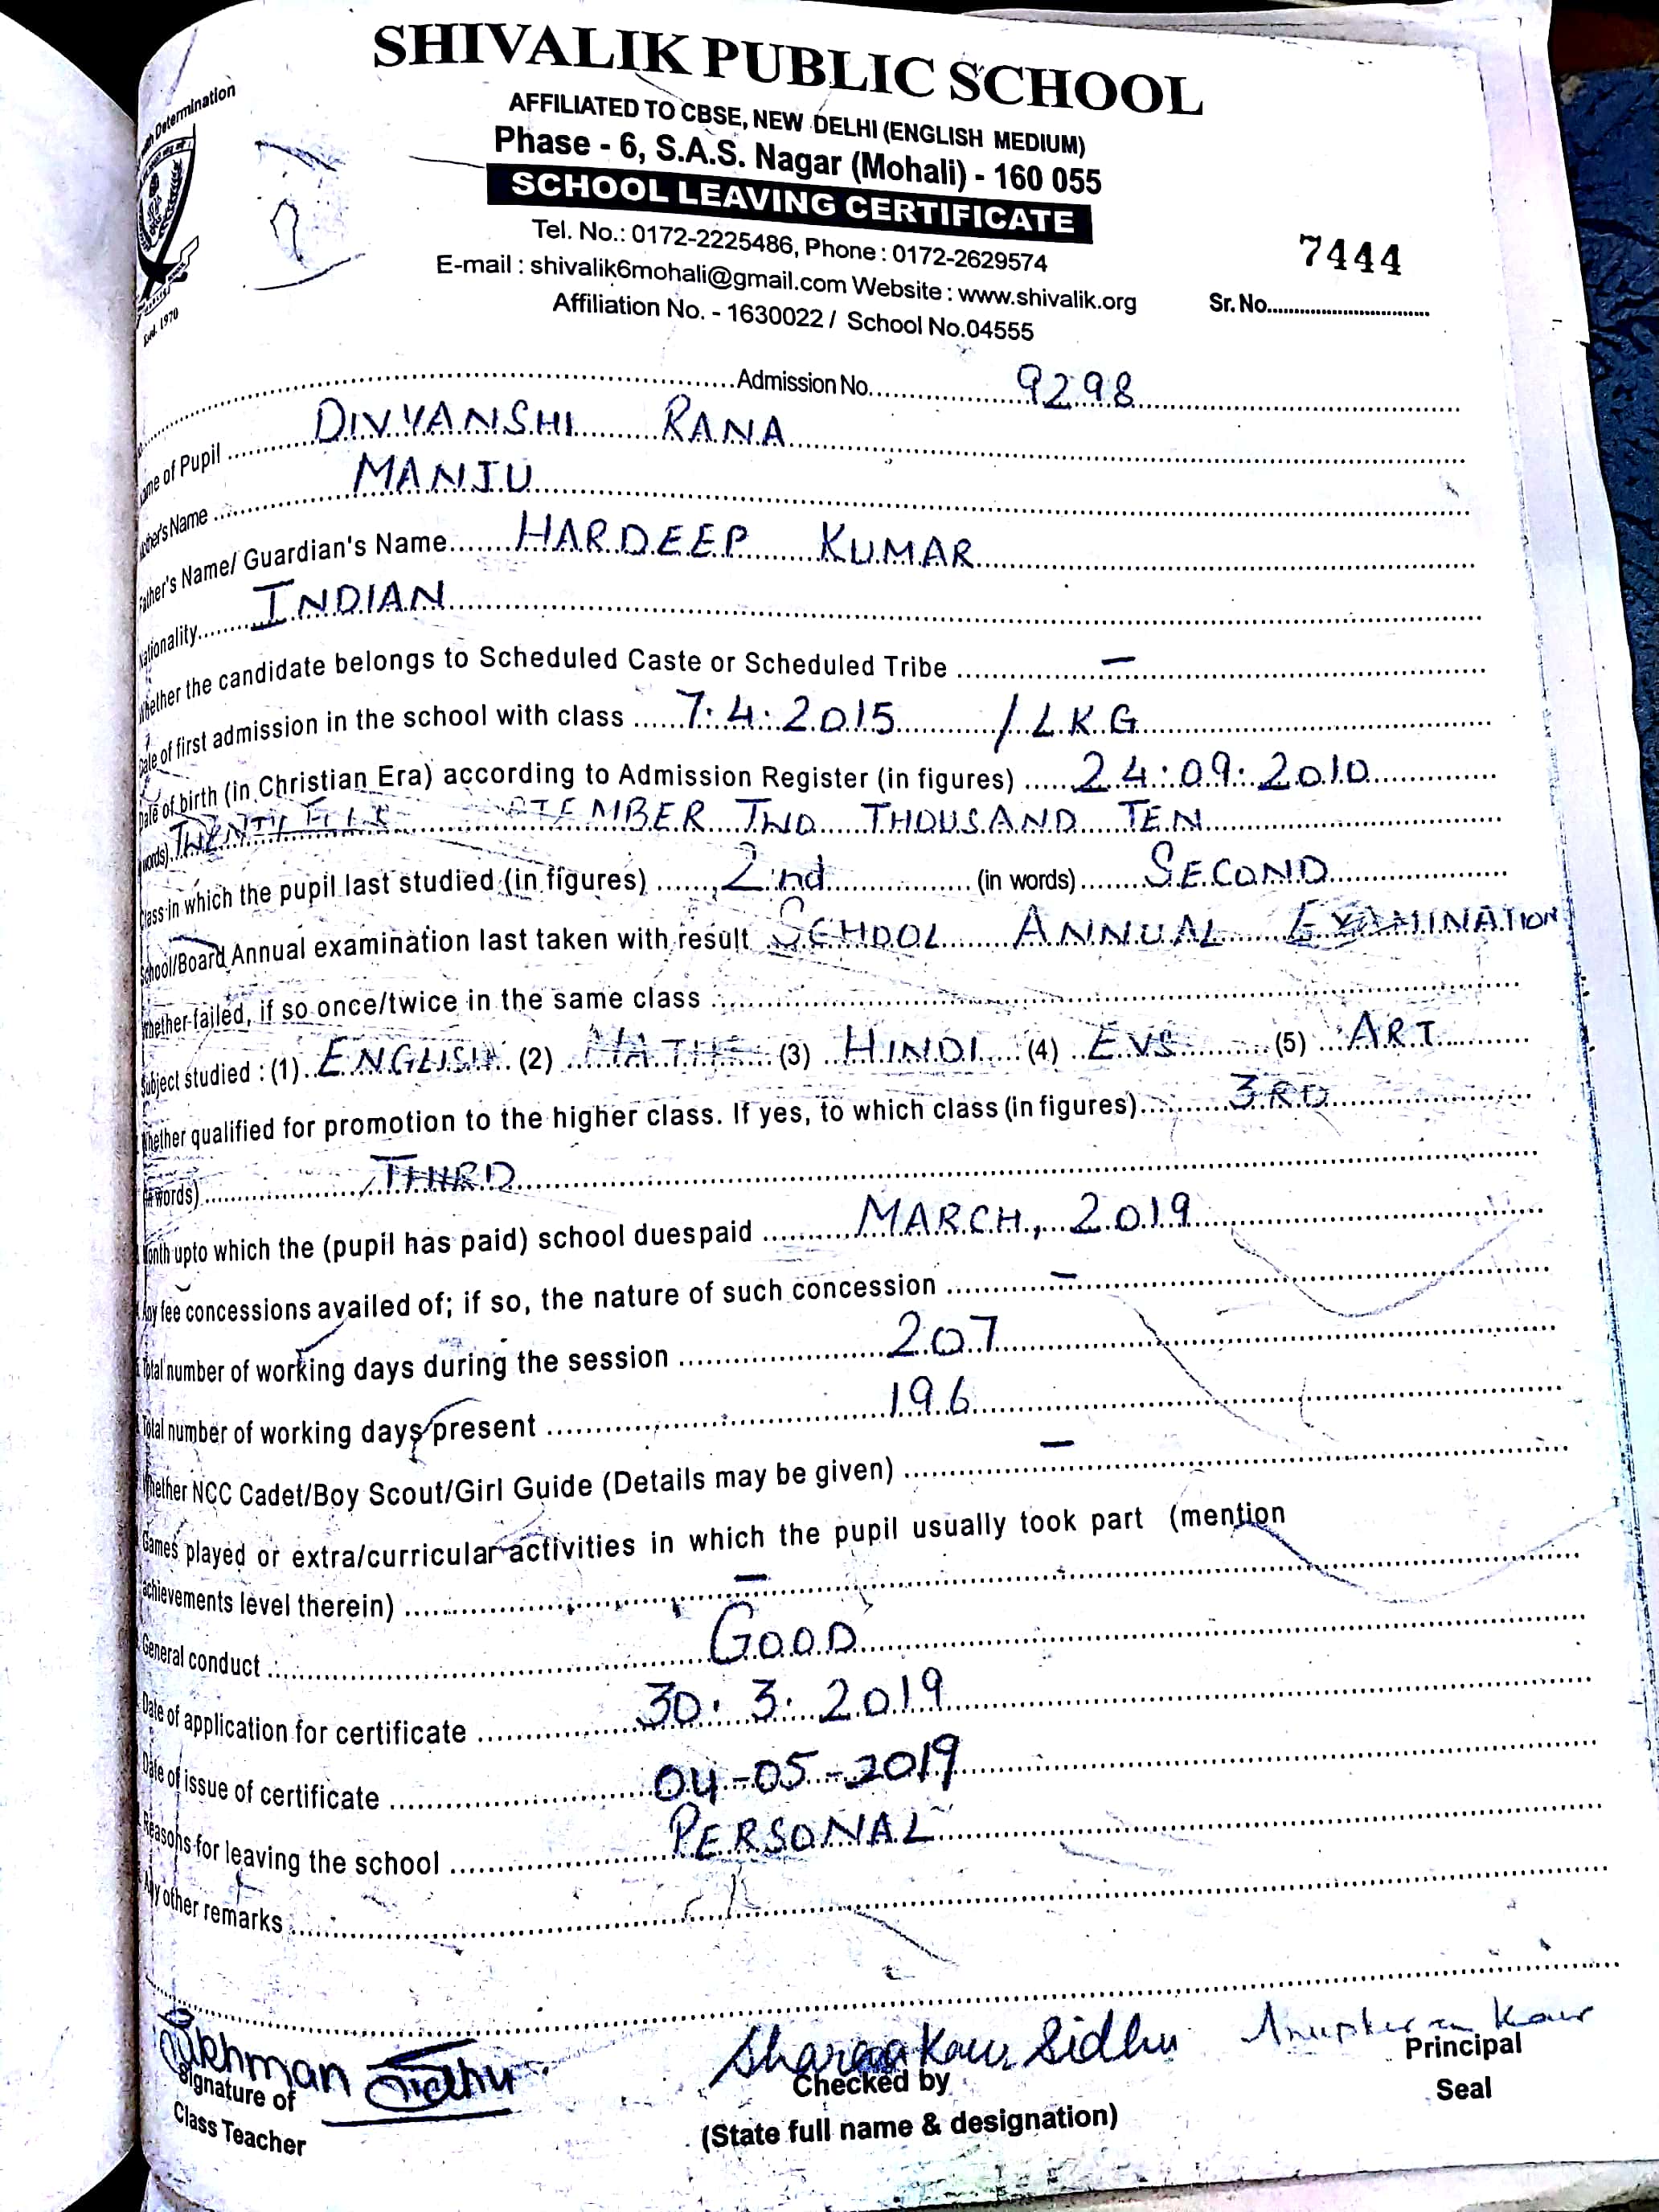 SHIVALIK PUBLIC SCHOOL
AFFILIATED TO CBSE, NEW DELHI (ENGLISH MEDIUM)
Phase - 6, S.A.S. Nagar (Mohali) - 160 055
SCHOOL LEAVING CERTIFICATE
Tel. No.: 0172-2225486, Phone : 0172-2629574
E-mail : shivalik6mohali@gmail.com Website : www.shivalik.org
Affiliation No. - 1630022 / School No.04555
with Determination
Estd. 1970
7444
Sr. No.
Admission No. 9298
Name of Pupil DIVYANSHI RANA
Mother's Name MANJU
Father's Name/ Guardian's Name HARDEEP KUMAR
Nationality INDIAN
Whether the candidate belongs to Scheduled Caste or Scheduled Tribe –
Date of first admission in the school with class 7.4.2015 / LKG
Date of birth (in Christian Era) according to Admission Register (in figures) 24.09.2010
words) TWENTY TEMBER TWO THOUSAND TEN
Class in which the pupil last studied (in figures) 2nd (in words) SECOND
School/Board Annual examination last taken with result SCHOOL ANNUAL EXAMINATION
Whether failed, if so once/twice in the same class
Subject studied : (1) ENGLISH (2) MATHS (3) HINDI (4) EVS (5) ART
Whether qualified for promotion to the higher class. If yes, to which class (in figures) 3RD
(in words) THIRD
Month upto which the (pupil has paid) school duespaid MARCH, 2019
Any fee concessions availed of; if so, the nature of such concession –
Total number of working days during the session 207
Total number of working days present 196
Whether NCC Cadet/Boy Scout/Girl Guide (Details may be given) –
Games played or extra/curricular activities in which the pupil usually took part (mention
achievements level therein) –
General conduct : GOOD
Date of application for certificate 30.3.2019
Date of issue of certificate 04-05-2019
Reasons for leaving the school PERSONAL
Any other remarks
Sukhman Sidhu Kaur Sidhu Kaur
Signature of
Class Teacher
Checked by
(State full name & designation)
Principal
Seal